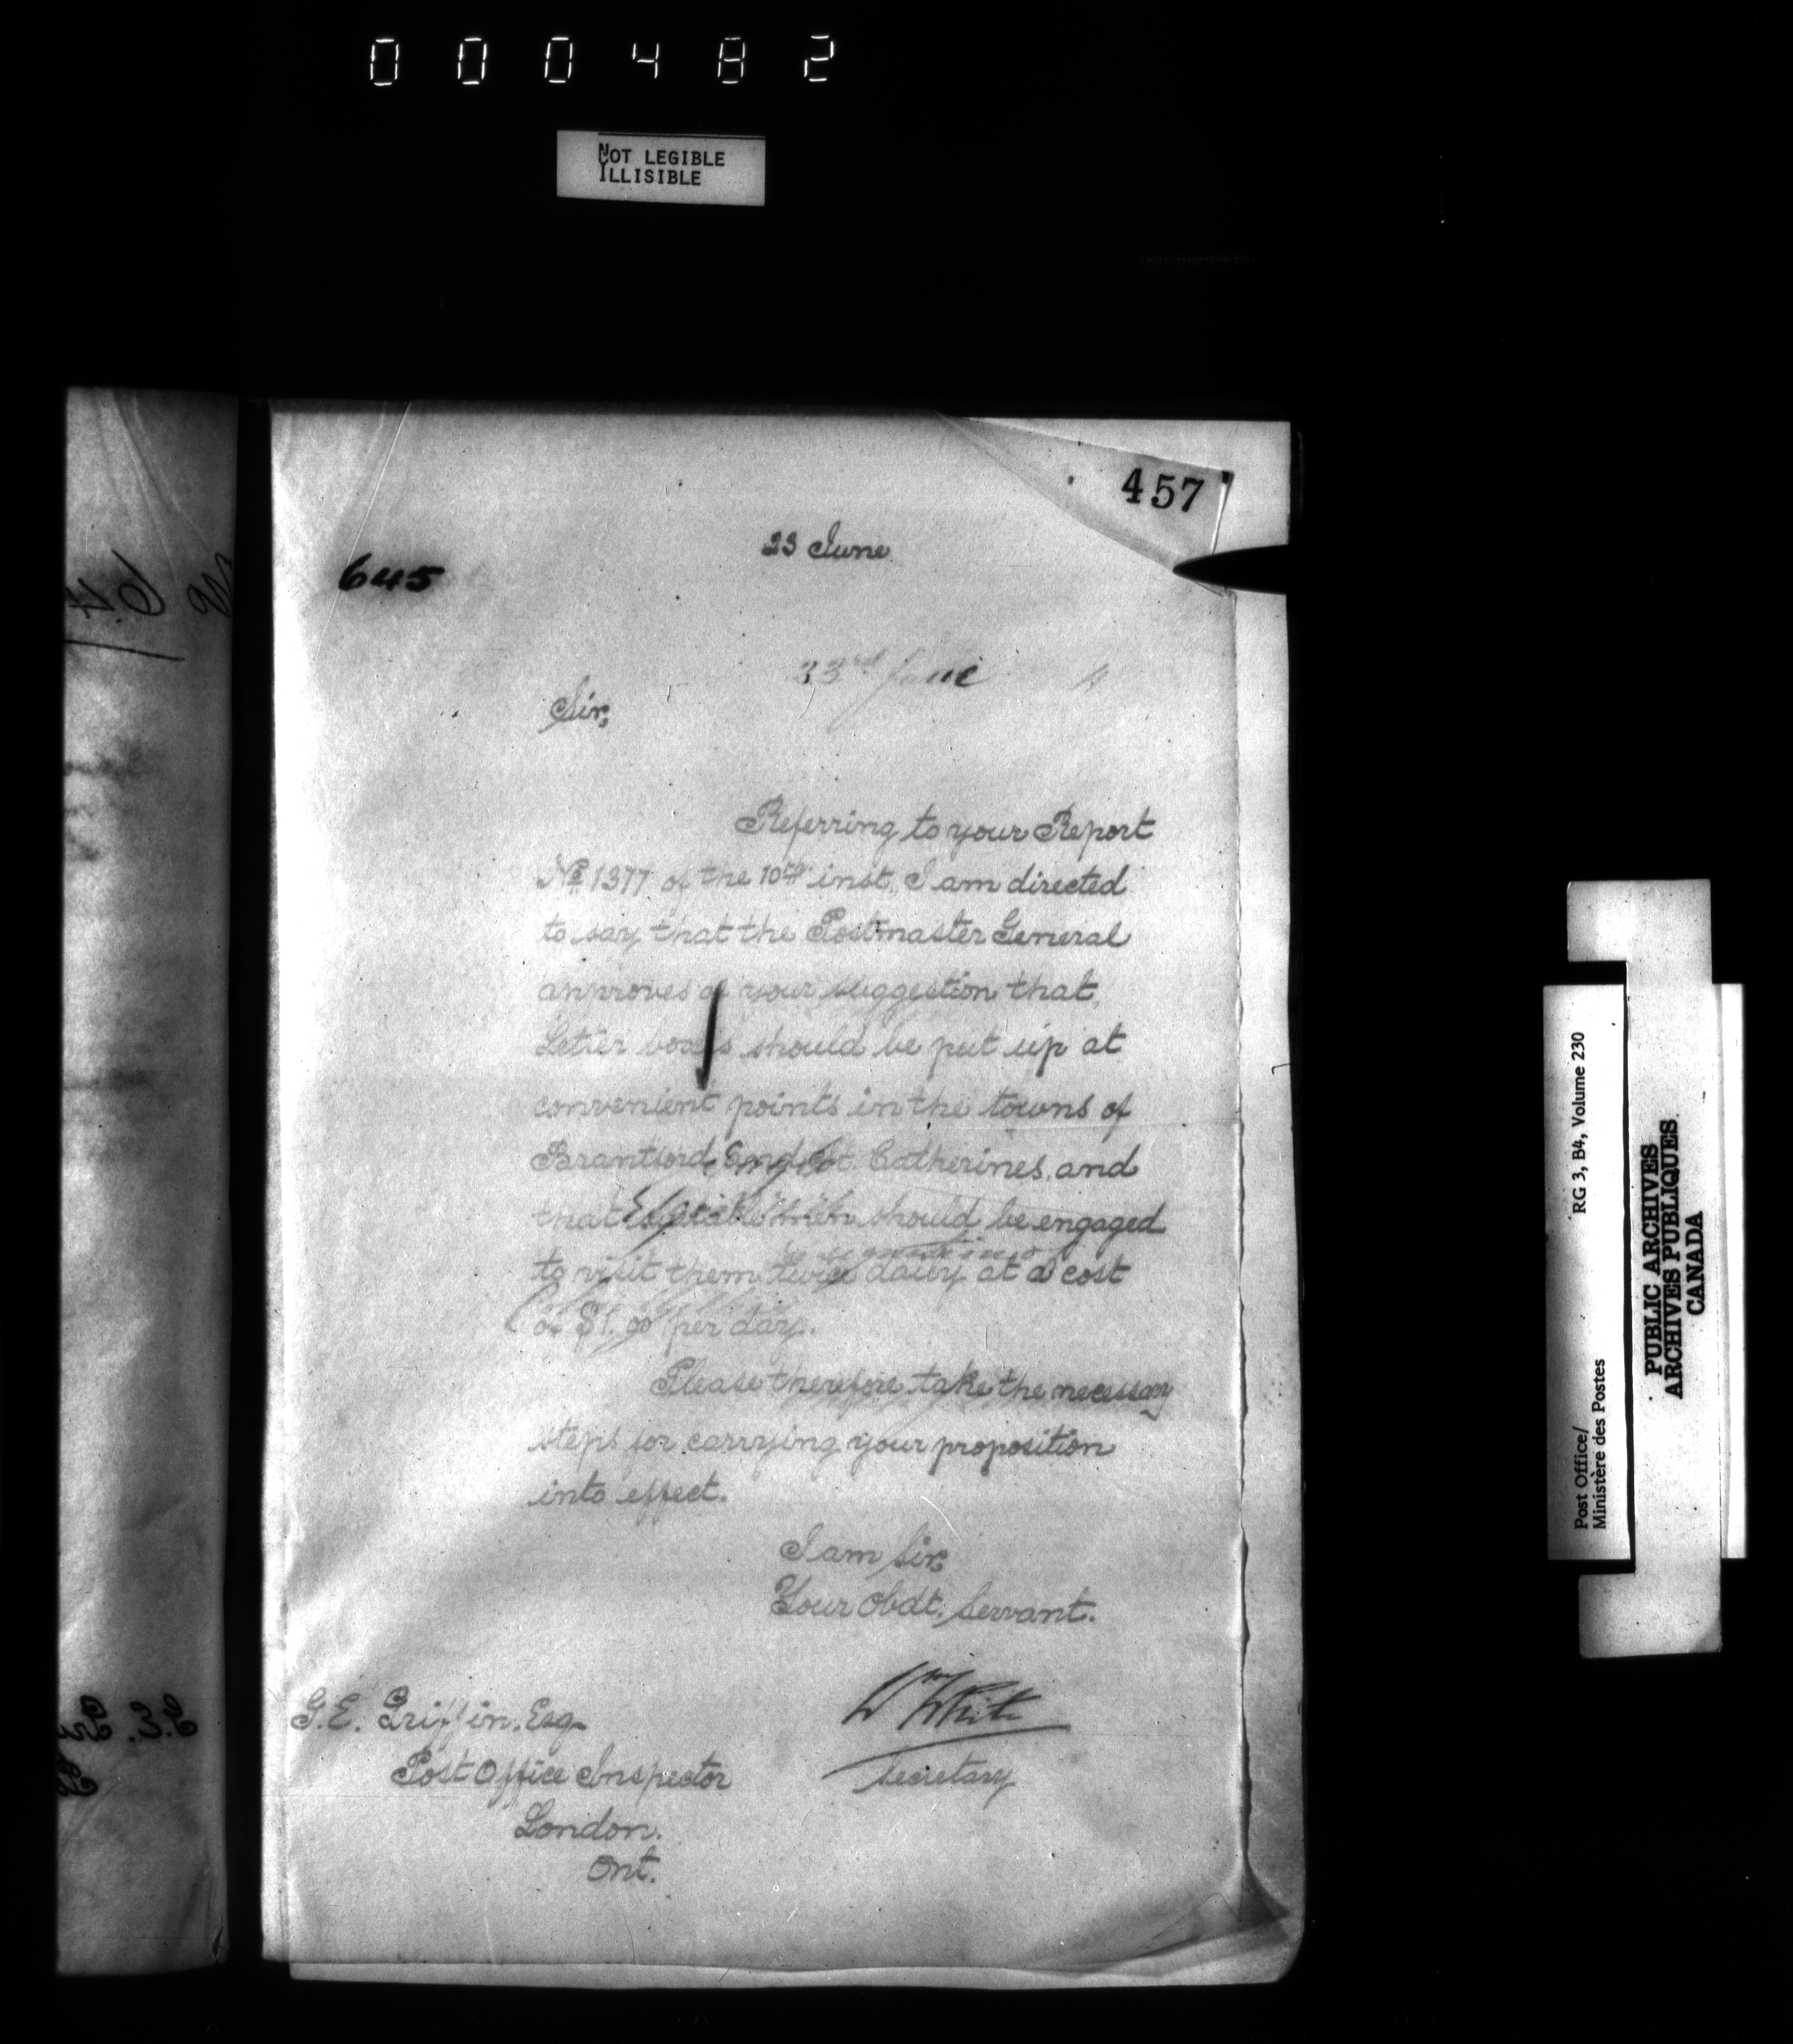 000482
NOT LEGIBLE
ILLISIBLE
457
23 June
645
23rd June
Sir,
Referring to your Report
No 1377 of the 10th inst, I am directed
to say that the Postmaster General
approves of your suggestion that
Letter boxes should be put up at
convenient points in the towns of
Brantford and St. Catherines, and
that men should be engaged
to visit them twice daily at a cost
of $1.00 per day.
Please therefore take the necessary
steps for carrying your proposition
into effect.
I am Sir,
Your Obdt. Servant.
Wm White
Secretary
G.E. Griffin, Esq
Post Office Inspector
London.
Ont.
Post Office/
Ministère des Postes
RG 3, B4, Volume 230
PUBLIC ARCHIVES
ARCHIVES PUBLIQUES
CANADA